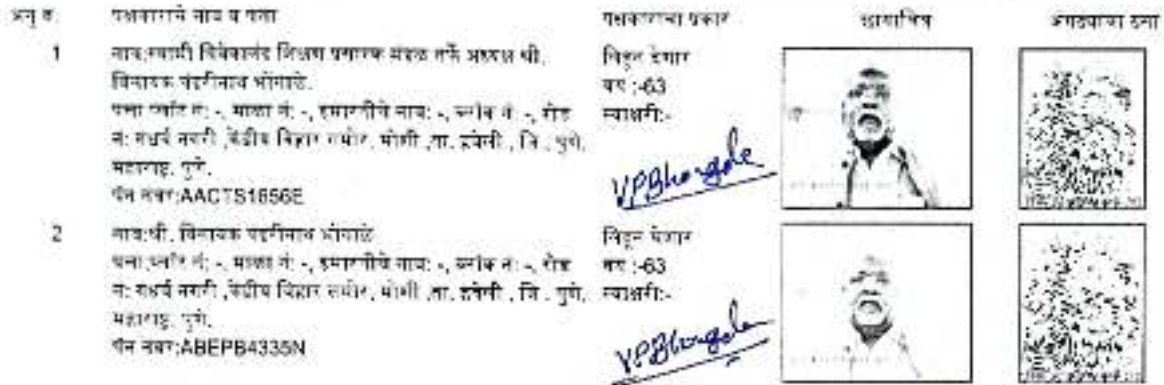 अनु क्र. पक्षकाराचे नाव व पत्ता पक्षकाराचा प्रकार छायाचित्र अंगठ्याचा ठसा
1 नाव:स्वामी विवेकानंद शिक्षण प्रसारक मंडळ तर्फे अध्यक्ष श्री.
विनायक पंढरीनाथ भोंगाळे.
पत्ता:प्लॉट नं: -, माळा नं: -, इमारतीचे नाव: -, ब्लॉक नं: -, रोड
नं: गंधर्व नगरी ,केंद्रीय विहार समोर, मोशी ,ता. हवेली , जि . पुणे,
महाराष्ट्र, पुणे.
पॅन नंबर:AACTS1656E
लिहून देणार
वय :-63
स्वाक्षरी:-
VPBhongale
2 नाव:श्री. विनायक पंढरीनाथ भोंगाळे
पत्ता:प्लॉट नं: -, माळा नं: -, इमारतीचे नाव: -, ब्लॉक नं: -, रोड
नं: गंधर्व नगरी ,केंद्रीय विहार समोर, मोशी ,ता. हवेली , जि . पुणे,
महाराष्ट्र, पुणे.
पॅन नंबर:ABEPB4335N
लिहून घेणार
वय :-63
स्वाक्षरी:-
VPBhongale